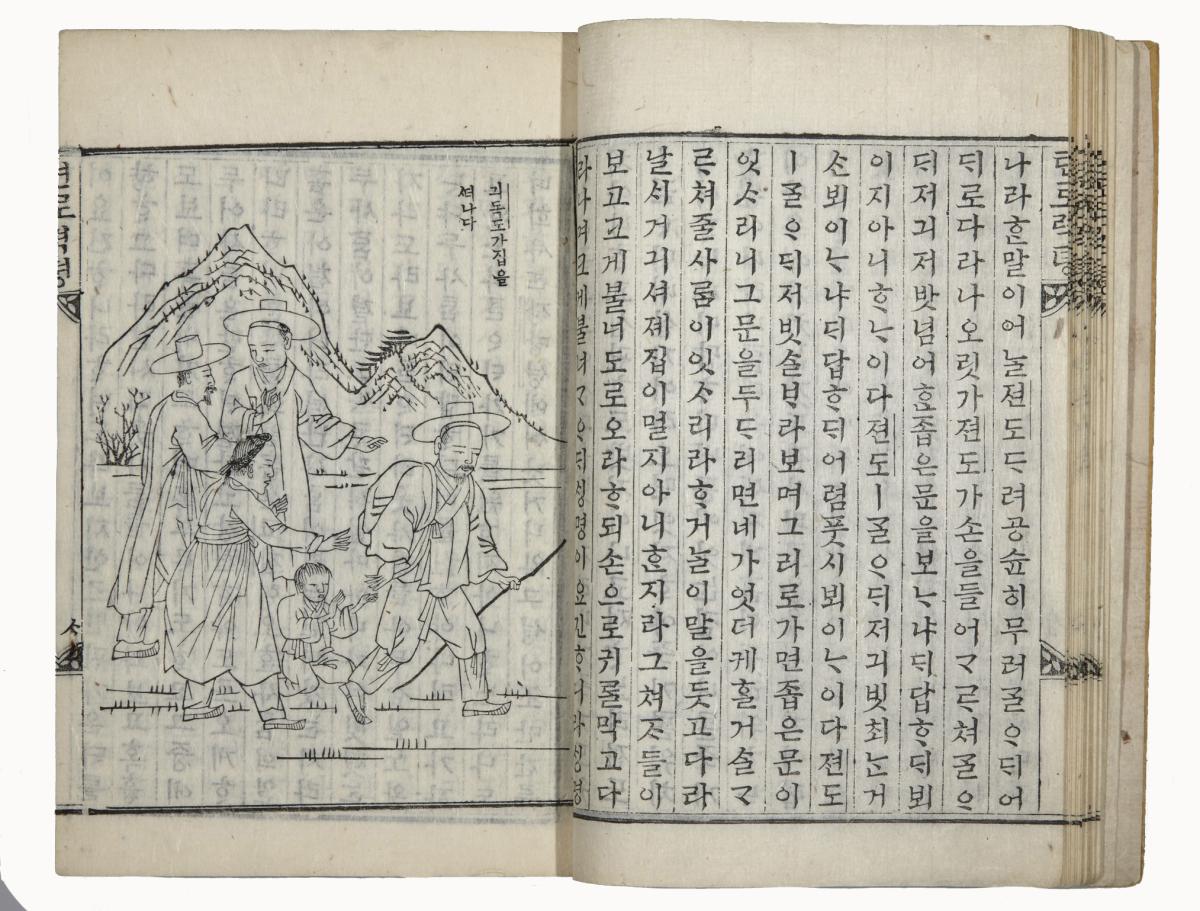 텬로력뎡
나라ᄒᆞᆫ말이어ᄂᆞᆯ젼도ᄃᆞ려공슌히무러ᄀᆞᆯᄋᆞᄃᆡ어
ᄃᆡ로다라나오릿가젼도가손을들어ᄀᆞᄅᆞ쳐ᄀᆞᆯᄋᆞ
ᄃᆡ저긔저밧념어ᄒᆞᆫ좁은문을보ᄂᆞ냐ᄃᆡ답ᄒᆞᄃᆡ뵈
이지아니ᄒᆞᄂᆞ이다젼도ㅣᄀᆞᆯᄋᆞᄃᆡ저긔빗최ᄂᆞᆫ거
ᄉᆞᆫ뵈이ᄂᆞ냐ᄃᆡ답ᄒᆞᄃᆡ어렴풋시뵈이ᄂᆞ이다젼도
ㅣᄀᆞᆯᄋᆞᄃᆡ저빗ᄉᆞᆯᄇᆞ라보며그리로가면좁은문이
잇ᄉᆞ리니그문을두ᄃᆞ리면네가엇더케ᄒᆞᆯ거ᄉᆞᆯᄀᆞ
ᄅᆞ쳐줄사ᄅᆞᆷ이잇ᄉᆞ리라ᄒᆞ거ᄂᆞᆯ이말을듯고다라
날ᄉᆡ거긔셔졔집이멀지아니ᄒᆞᆫ지라그쳐ᄌᆞ들이
보고크게불너도로오라ᄒᆞ되손으로귀ᄅᆞᆯ막고다
라나며크게불너ᄀᆞᆯᄋᆞᄃᆡᄉᆡᆼ명이요긴ᄒᆞ니라ᄉᆡᆼ명
긔독도가집을
ᄯᅥ나다
텬로력뎡
ᄉᆞ